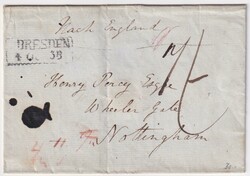 Nach England
DRESDEN
Henry Percy Esqre
Wheeler Gate
Nottingham